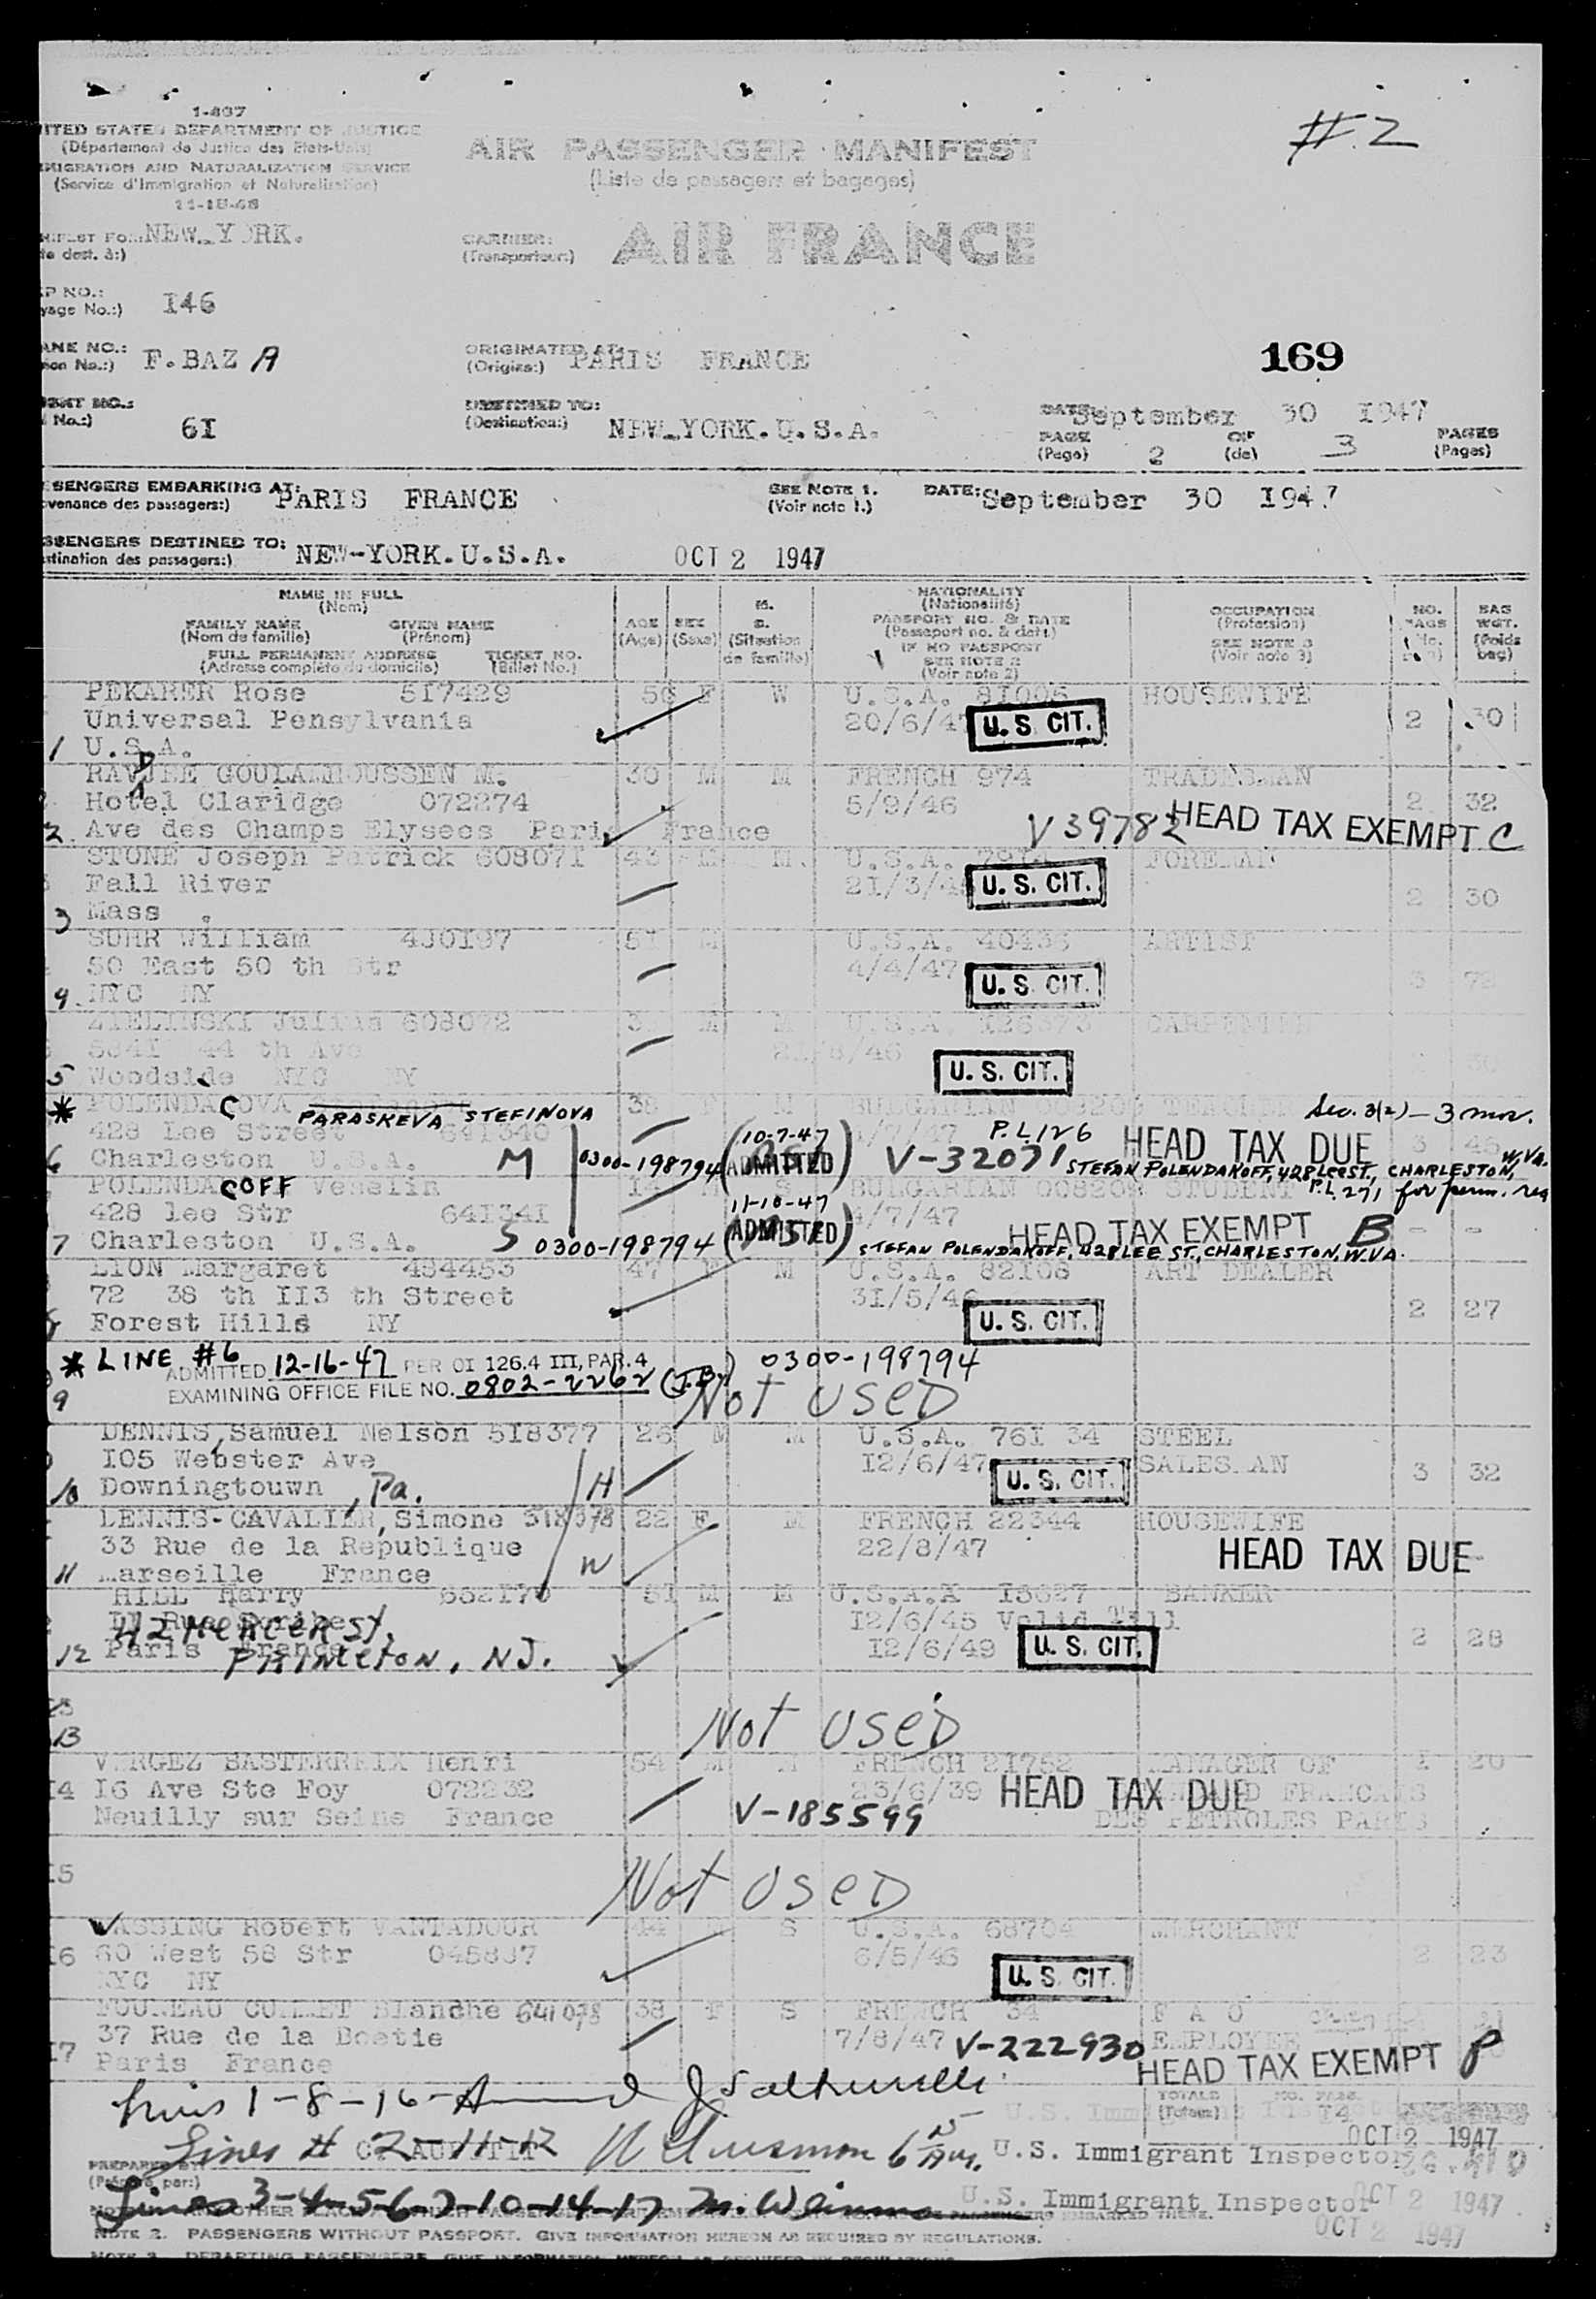 I-437
ITED STATES DEPARTMENT OF JUSTICE
(Département de Justice des Etats-Unis)
MIGRATION AND NATURALIZATION SERVICE
(Service d'Immigration et Naturalisation)
#2
AIR PASSENGER MANIFEST
(Liste de passagers et bagages)
NEW-YORK.
dest. à:)
CARRIER:
(Transporteur:)
AIR FRANCE
P NO.:
yage No.:) I46
ANE NO.:
ion No.:) F.BAZ A
ORIGINATED AT:
(Origine:) PARIS FRANCE
169
No.:) 6I
DESTINED TO:
(Destination:) NEW-YORK.U.S.A.
DATE: September 30 1947
PAGE (Page) 2 OF (de) 3 PAGES (Pages)
SENGERS EMBARKING AT: PARIS FRANCE
ovenance des passagers:)
SEE NOTE 1.
(Voir note 1.)
DATE: September 30 I947
SSENGERS DESTINED TO: NEW-YORK.U.S.A.
stination des passagers:)
OCT 2 1947
NAME IN FULL
(Nom)
FAMILY NAME GIVEN NAME
(Nom de famille) (Prénom)
FULL PERMANENT ADDRESS TICKET NO.
(Adresse complète du domicile) (Billet No.)
AGE (Age)
SEX (Sexe)
M. S. (Situation de famille)
NATIONALITY
(Nationalité)
PASSPORT NO. & DATE
(Passeport no. & date)
IF NO PASSPORT
SEE NOTE 2
(Voir note 2)
OCCUPATION
(Profession)
SEE NOTE 3
(Voir note 3)
NO. BAGS
BAG WGT. (Poids bag)
PEKARER Rose 5I7429 F W U.S.A. 8I006 HOUSEWIFE
Universal Pensylvania 20/6/47 U.S. CIT. 2 30
1 U.S.A.
GOULAMHOUSSEN M. 30 M M FRENCH 974 TRADESMAN
Hotel Claridge 072274 5/9/46 2 32
2. Ave des Champs Elysees Paris France V39782 HEAD TAX EXEMPT C
STONE Joseph Patrick 60807I 43 M M U.S.A. FOREMAN
Fall River 2I/3/4 U.S. CIT. 2 30
3 Mass .
SUHR William 4J0I97 5I M U.S.A. 40438 ARTIST
50 East 50 th Str 4/4/47 U.S. CIT.
4. NYC NY
ZIELINSKI Julius 608072 M M U.S.A. CARPENTER
44 th Ave
5 Woodside NYC NY U.S. CIT.
* POLENDACOVA PARASKEVA STEFINOVA 38 F M BULGARIAN Sec. 3(2) - 3 mos.
428 Lee Street 64I340 /7/47 P.L. 126 HEAD TAX DUE 3 45
6 Charleston U.S.A. M 0300-198794 (10-7-47 ADMITTED) V-32071 STEFAN POLENDAKOFF, 428 Lee ST., CHARLESTON, W.VA.
POLENDACOFF Venelin S BULGARIAN STUDENT P.L. 271 for perm. res
428 lee Str 64I34I 4/7/47
7 Charleston U.S.A. S 0300-198794 (11-10-47 ADMITTED) HEAD TAX EXEMPT B
STEFAN POLENDAKOFF, 428 LEE ST., CHARLESTON, W.VA.
LION Margaret 484453 47 F M U.S.A. 82I08 ART DEALER
72 38 th II3 th Street 3I/5/46 2 27
8 Forest Hills NY U.S. CIT.
* LINE #6 ADMITTED 12-16-47 PER OI 126.4 III, PAR. 4 0300-198794
EXAMINING OFFICE FILE NO. 0802-2262 (J.B.)
9 Not USED
DENNIS, Samuel Nelson 5I8377 26 M M U.S.A. 76I 34 STEEL
I05 Webster Ave I2/6/47 U.S. CIT. SALES AN 3 32
10 Downingtouwn, Pa. H
DENNIS-CAVALIER, Simone 518378 22 F M FRENCH 22344 HOUSEWIFE
33 Rue de la Republique 22/8/47 HEAD TAX DUE
11 Marseille France W
HILL Harry 51 M M U.S.A. I3627 BANKER
42 MERCER ST. I2/6/45 Valid Till
12 Paris France PRINCETON, NJ. I2/6/49 U.S. CIT. 2 28
13 Not USED
VERGEZ Henri 54 M M FRENCH 2I752 MANAGER OF 20
I4 I6 Ave Ste Foy 072232 23/6/39 HEAD TAX DUE FRANCAIS
Neuilly sur Seine France V-185599 DES PETROLES PARIS
I5 Not USED
WASSING Robert VANTADOUR 44 S U.S.A. 68704 MERCHANT
I6 60 West 58 Str 045837 6/5/46 2 23
NYC NY U.S. CIT.
Blanche 641078 38 F S FRENCH 34 F A O
37 Rue de la Boetie 7/8/47 V-222930 EMPLOYEE
I7 Paris France HEAD TAX EXEMPT P
Lines 1-8-16-
U.S. Immigrant Inspector
TOTALS (Totaux) NO. PASS. 14
Lines # 2-11-12
U.S. Immigrant Inspector
OCT 2 1947
PREPARED BY
(Préparé par:)
Lines 3-4-5-6-7-10-14-17
U.S. Immigrant Inspector
OCT 2 1947
NOTE 2. PASSENGERS WITHOUT PASSPORT. GIVE INFORMATION HEREON AS REQUIRED BY REGULATIONS.
OCT 2 1947